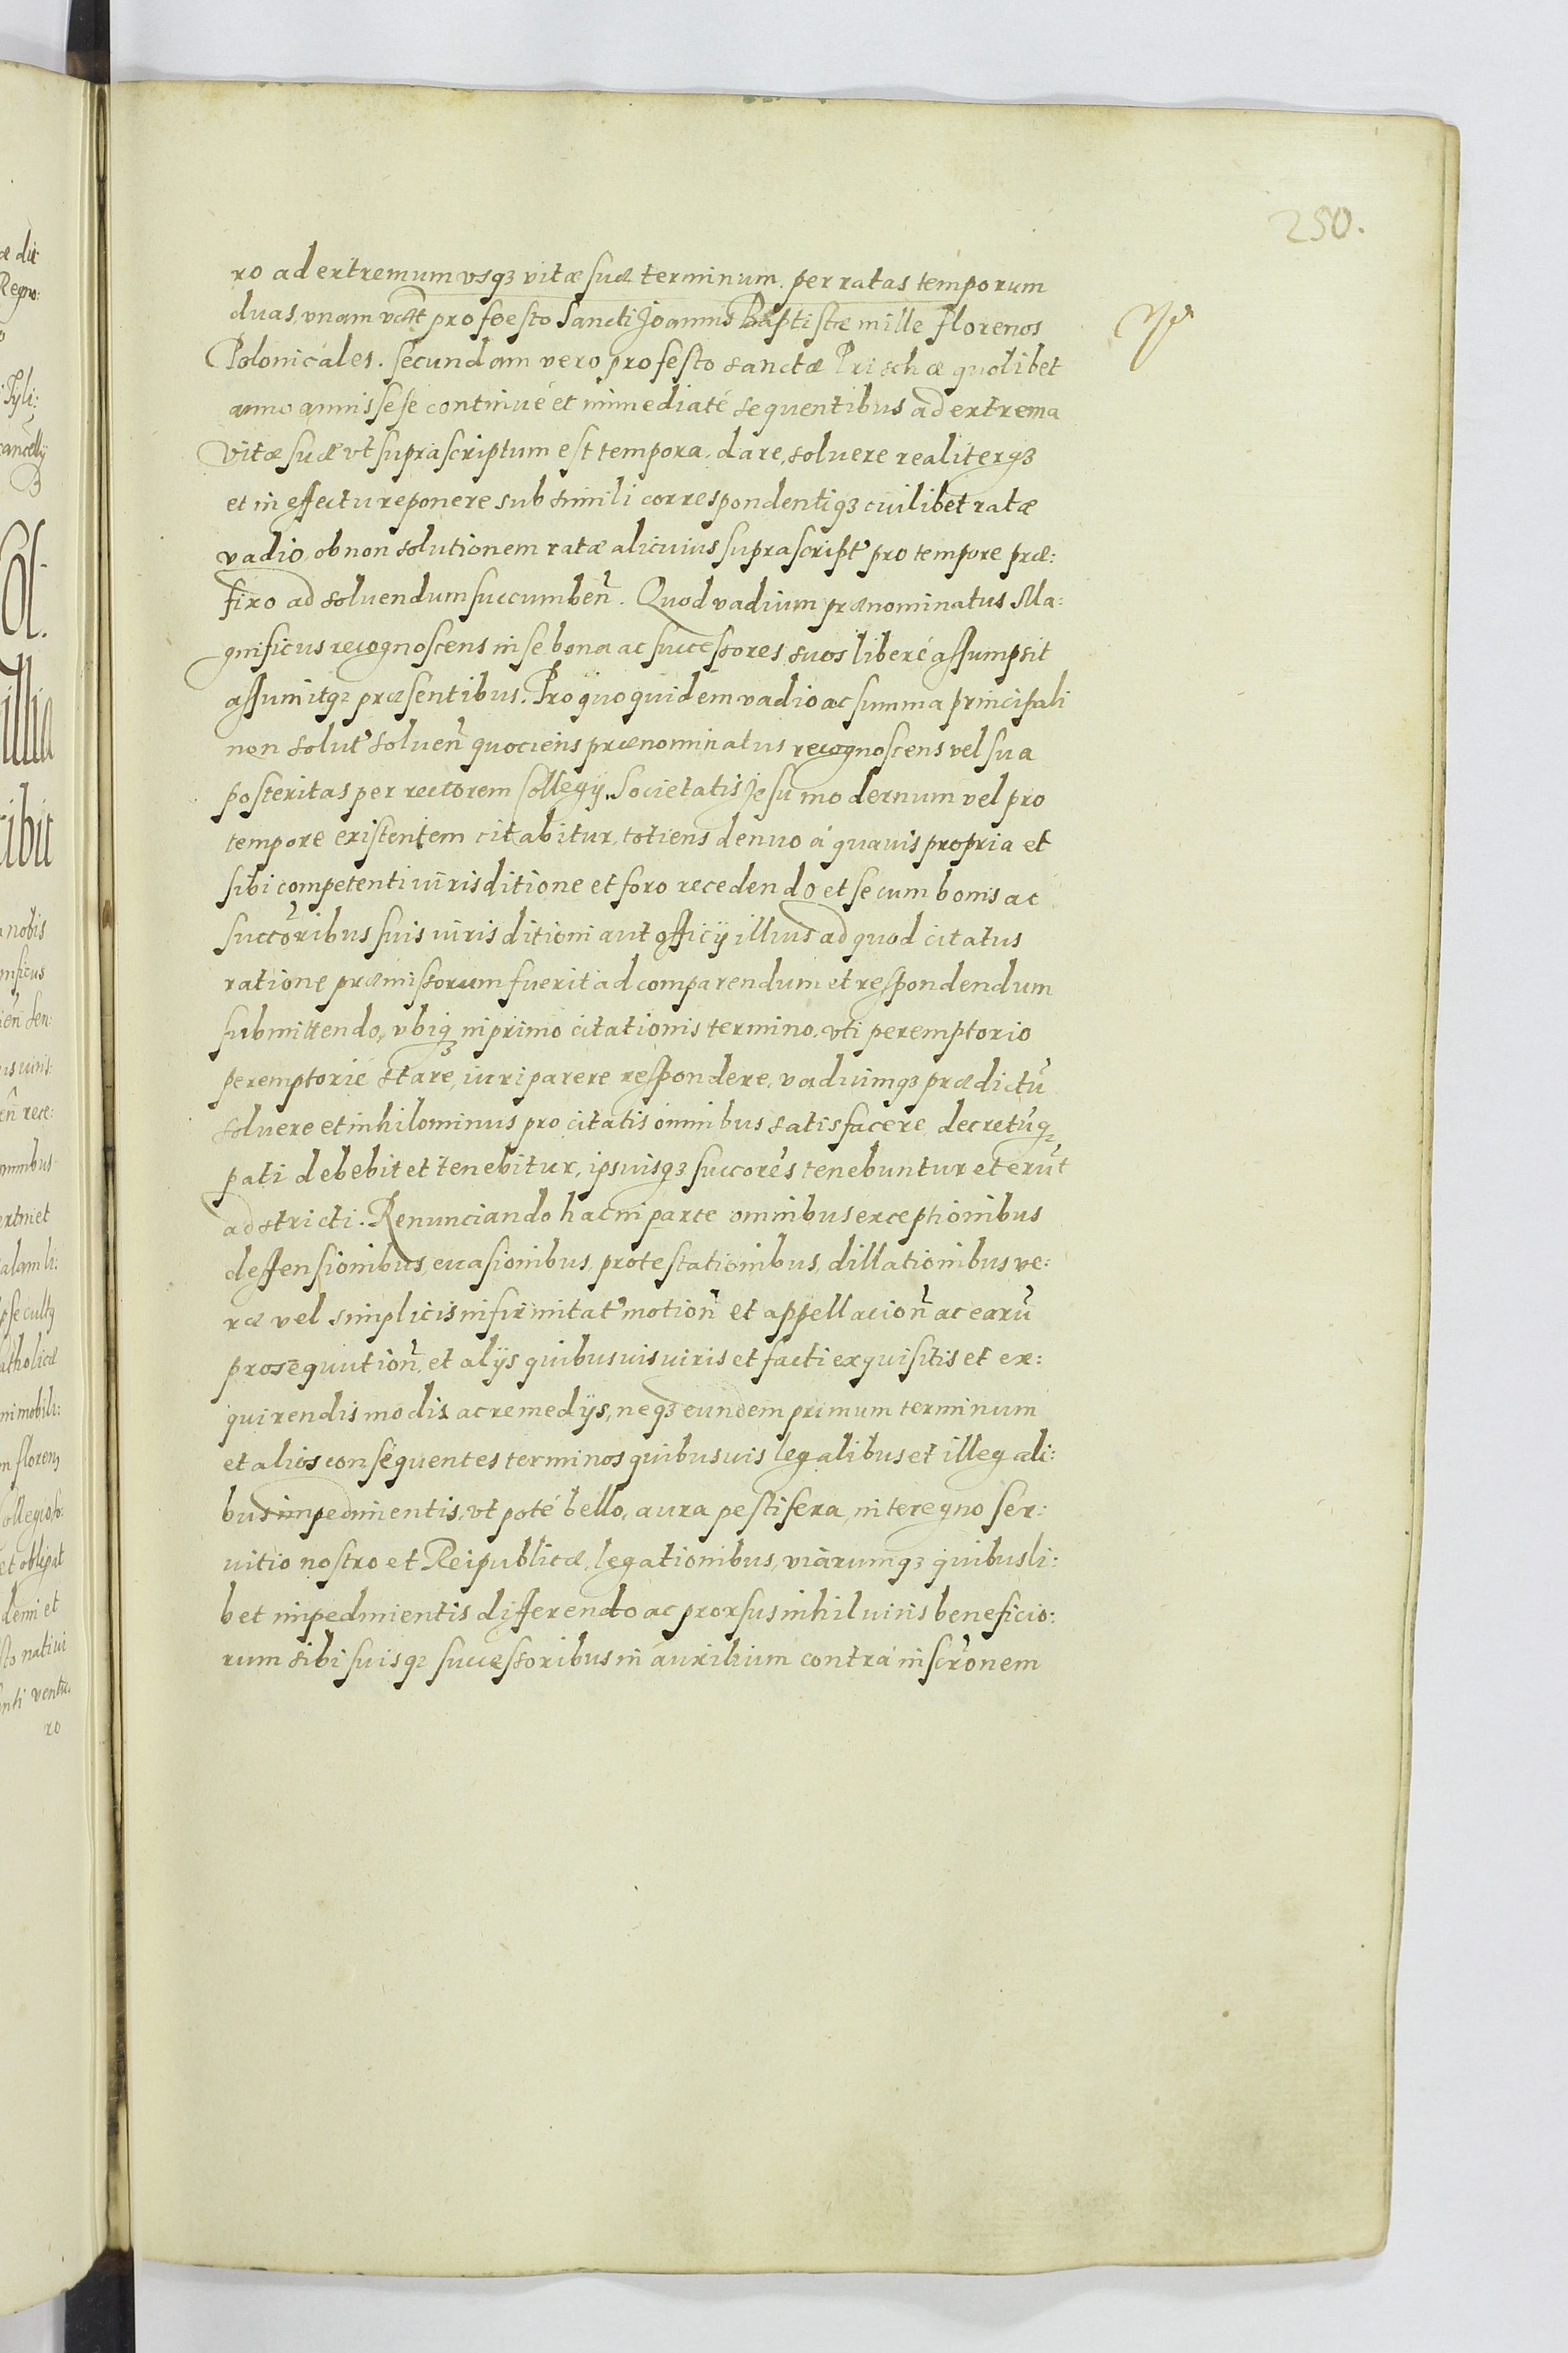 250.
ro ad extremum vsq3 vitæ suæ terminum. per ratas temporum
duas, vnam pro foesto Sancti Joannis Baptistæ mille florenos
Polonicales. secundam vero pro festo sanctæ Prischæ quolibet
anno annis sese continué et immediaté sequentibus ad extrema
vitæ suæ vt suprascriptum est tempora. dare, soluere realiterq3
et in effectu reponere sub simili correspondentiq3 cuilibet ratæ
vadio, ob non solutionem ratæ alicuius suprascript' pro tempore præ:
fixo ad soluendum succumbeñ. Quod vadium prænominatus Ma:
gnificus recognoscens in se bona ac successores suos liberé assumpsit
assumitq3 præsentibus. Pro quo quidem vadio ac summa principali
non solut' solueñ quociens prænominatus recognoscens vel sua
posteritas per rectorem Collegij Societatis Jesu modernum vel pro
tempore existentem citabitur, totiens denuo á quauis propria et
sibi competenti iurisditione et foro recedendo et se cum bonis ac
succoribus suis iurisditioni aut officij illius ad quod citatus
ratione præmissorum fuerit ad comparendum et respondendum
submittendo, vbiq3 in primo citationis termino. vti peremptorio
peremptorié stare, iuri parere respondere, vadiumq3 prædictũ
soluere et nihilominus pro citatis omnibus satisfacere decretũq3
pati debebit et tenebitur, ipsuisq3 succores tenebuntur et erũt
adstricti. Renunciando hac in parte omnibus exceptionibus
deffensionibus, euasionibus, protestationibus, dillationibus ve:
ræ vel simplicis infirmitat' motioñ et appellacioñ ac earũ
prosequutioñ, et alijs quibusuis iuris et facti exquisitis et ex:
quirendis modis ac remedijs, neq3 eundem primum terminum
et alios consequentes terminos quibusuis legalibus et illegali:
bus impedimentis, vt poté bello, aura pestifera, interegno ser:
uitio nostro et Reipublicæ, legationibus, viarumq3 quibusli:
bet impedimentis differendo ac prorsus nihil iuris beneficio:
rum sibi suisq3 successoribus in auxilium contrá inscronem